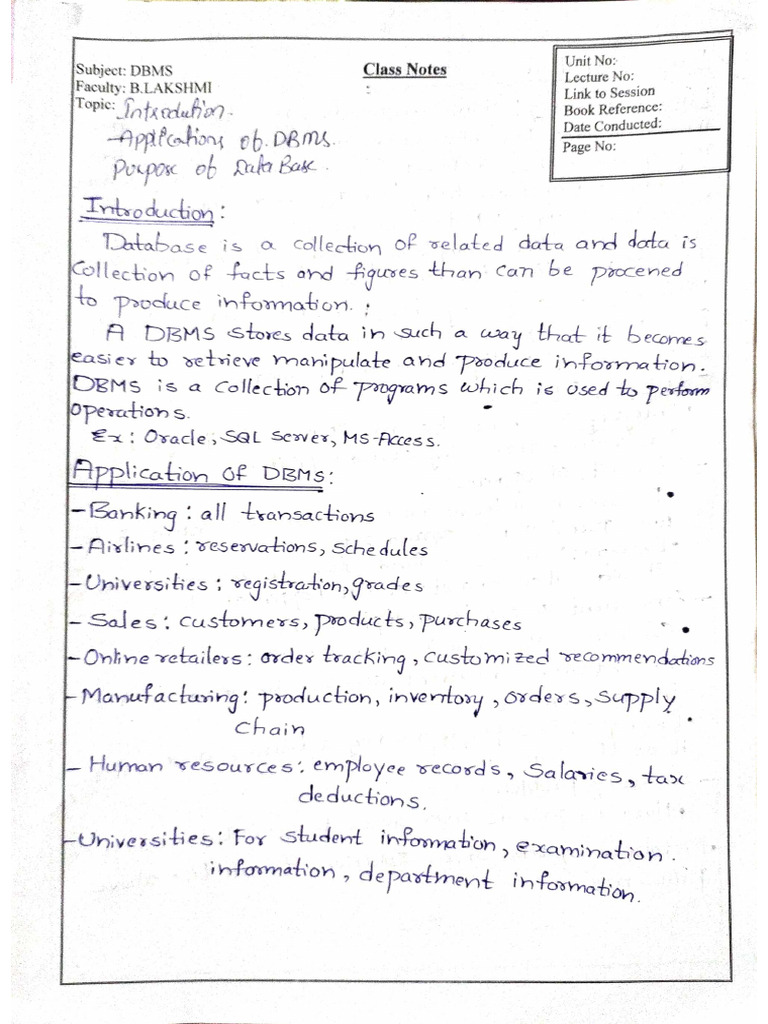 Subject: DBMS
Class Notes
:
Faculty: B.LAKSHMI
Topic: Introdution.
Applications of DBMS.
Purpose of Data Base.
Unit No:
Lecture No:
Link to Session
Book Reference:
Date Conducted:
Page No:
Introduction:
Database is a collection of related data and data is
Collection of facts and figures than can be procened
to produce information.
A DBMS stores data in such a way that it becomes
easier to retrieve manipulate and produce information.
DBMS is a collection of programs which is used to perform
operations.
Ex: Oracle, SQL Server, MS-Access.
Application of DBMS:
- Banking: all transactions
- Airlines: reservations, schedules
- Universities: registration, grades
- Sales: customers, products, purchases
- Online retailers: order tracking, customized recommendations
- Manufacturing: production, inventory, orders, supply
chain
- Human resources: employee records, Salaries, tax
deductions.
- Universities: For student information, examination
information, department information.